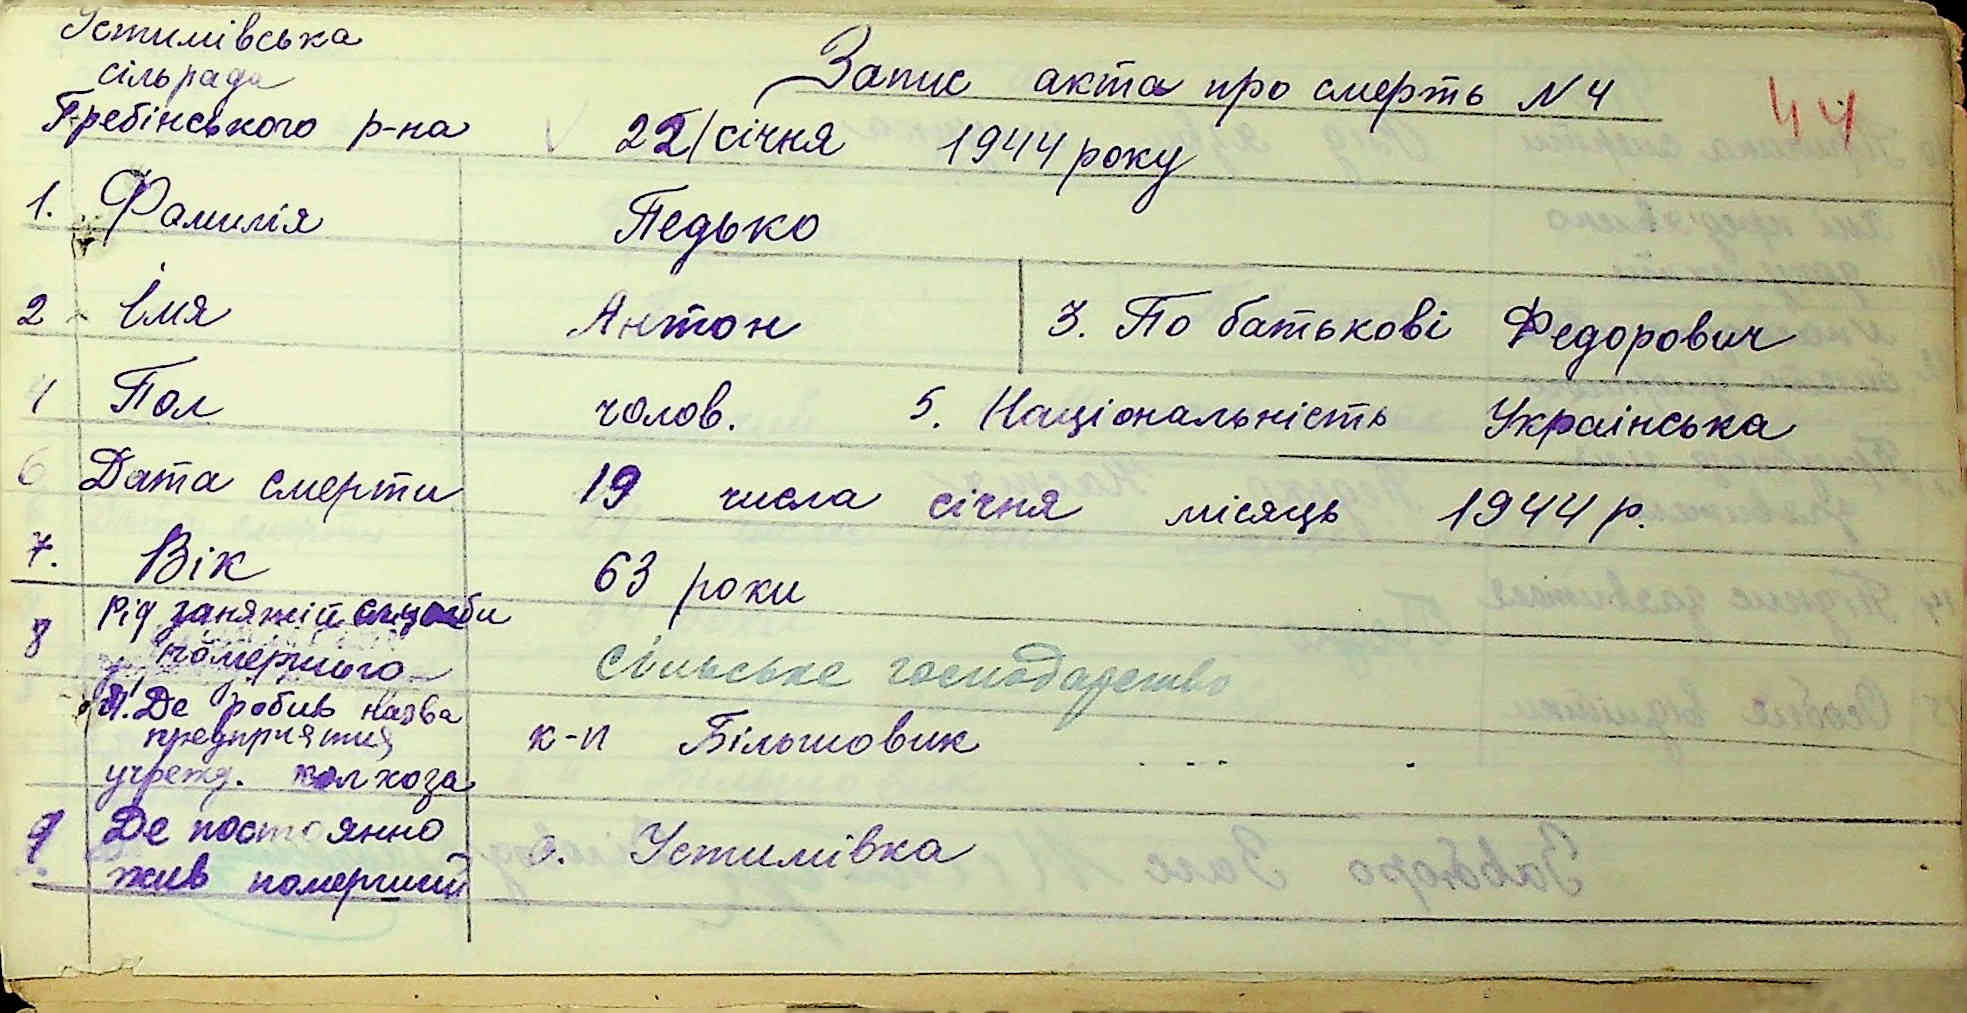 Устимівська
сільрада
Гребінського р-на
Запис акта про смерть N 4
44
22/січня 1944 року
1. Фамилія Педько
2 Імя Антон 3. По батькові Федорович
4 Пол чолов. 5. Національність Українська
6 Дата смерти 19 числа січня місяць 1944 р.
7. Вік 63 роки
8 рід заняжій службы
помершого
Сільське господарство
Де робив назва
предприятия
учрежд. колхоза
к-п Більшовик
9 Де постоянно
жив померший
с. Устимівка